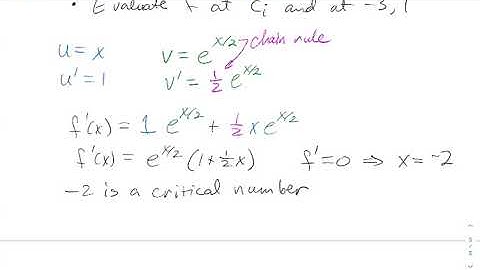 • Evaluate f at Cᵢ and at -3, 1
chain rule
u = x v = e^{x/2}
u' = 1 v' = 1/2 e^{x/2}
f'(x) = 1 e^{x/2} + 1/2 x e^{x/2}
f'(x) = e^{x/2} (1 + 1/2 x) f' = 0 ⇒ x = -2
-2 is a critical number